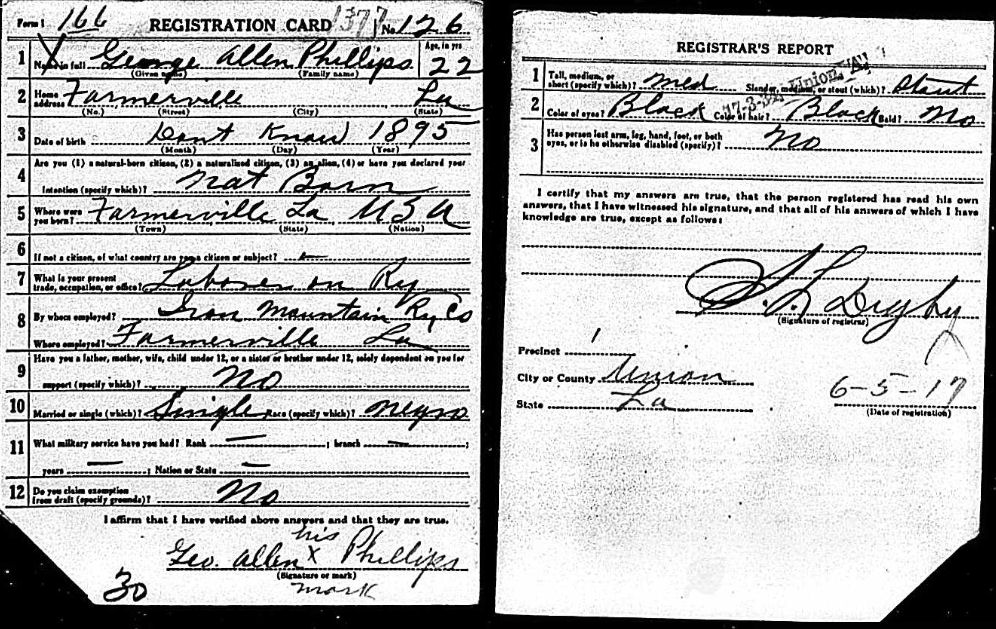 Form 1 166 REGISTRATION CARD 1377 No. 126
1 X Name in full George Allen Phillips Age, in yrs 22
(Given name) (Family name)
2 Home address Farmerville La
(No.) (Street) (City) (State)
3 Date of birth Dont Know 1895
(Month) (Day) (Year)
4 Are you (1) a natural-born citizen, (2) a naturalized citizen, (3) an alien, (4) or have you declared your
intention (specify which)? Nat Born
5 Where were you born? Farmerville La USA
(Town) (State) (Nation)
6 If not a citizen, of what country are you a citizen or subject? —
7 What is your present trade, occupation, or office? Laborer on Ry
8 By whom employed? Iron Mountain Ry Co
Where employed? Farmerville La
9 Have you a father, mother, wife, child under 12, or a sister or brother under 12, solely dependent on you for
support (specify which)? No
10 Married or single (which)? Single Race (specify which)? Negro
11 What military service have you had? Rank — ; branch — ;
years — ; Nation or State —
12 Do you claim exemption from draft (specify grounds)? No
I affirm that I have verified above answers and that they are true.
his
Geo. Allen X Phillips
(Signature or mark)
mark
30
REGISTRAR'S REPORT
17-3-32 Union, LA
1 Tall, medium, or short (specify which)? Med Slender, medium, or stout (which)? Stout
2 Color of eyes? Black Color of hair? Black Bald? No
3 Has person lost arm, leg, hand, foot, or both eyes, or is he otherwise disabled (specify)? No
I certify that my answers are true, that the person registered has read his own
answers, that I have witnessed his signature, and that all of his answers of which I have
knowledge are true, except as follows:
Digby
(Signature of registrar)
Precinct 1
City or County Union
State La
6-5-17
(Date of registration)